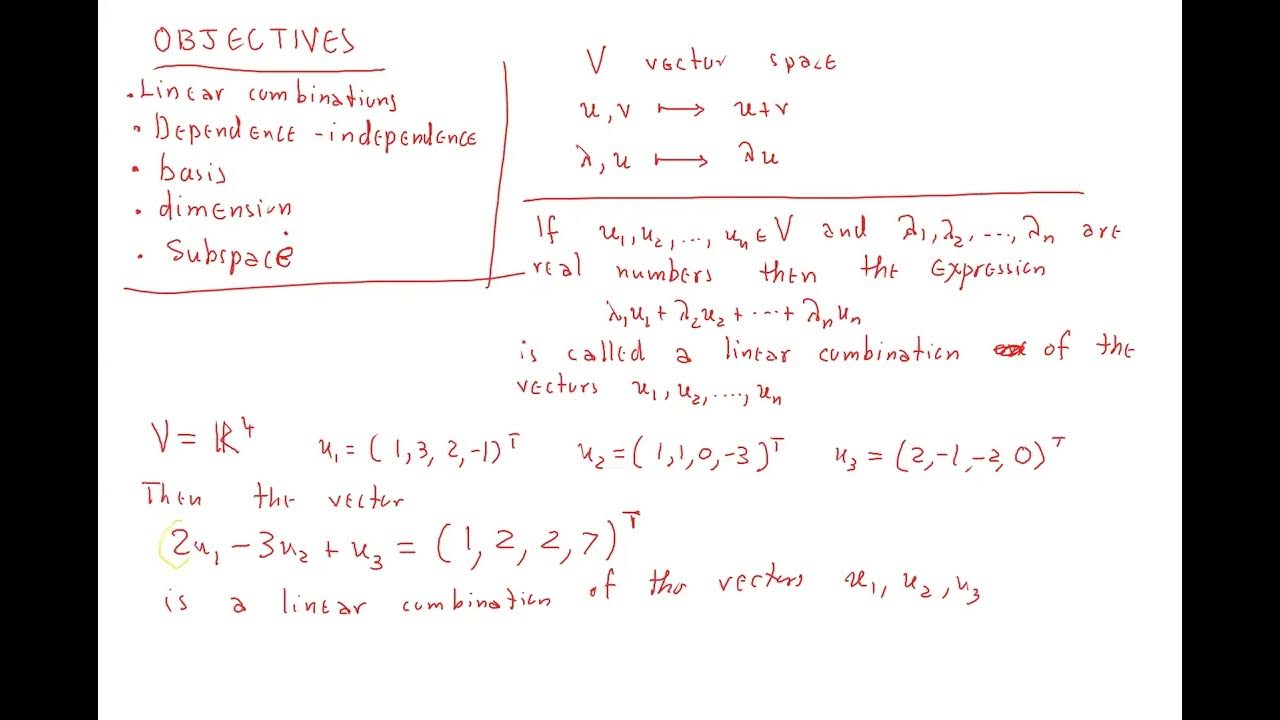 OBJECTIVES
• Linear combinations
• Dependence - independence
• basis
• dimension
• Subspace
V vector space
u, v ⟼ u+v
λ, u ⟼ λu
If u₁, u₂, ..., uₙ ∈ V and λ₁, λ₂, ..., λₙ are
real numbers then the expression
λ₁u₁ + λ₂u₂ + ... + λₙuₙ
is called a linear combination of the
vectors u₁, u₂, ..., uₙ
V = ℝ⁴ u₁ = (1, 3, 2, -1)ᵀ u₂ = (1, 1, 0, -3)ᵀ u₃ = (2, -1, -2, 0)ᵀ
Then the vector
2u₁ - 3u₂ + u₃ = (1, 2, 2, 7)ᵀ
is a linear combination of the vectors u₁, u₂, u₃